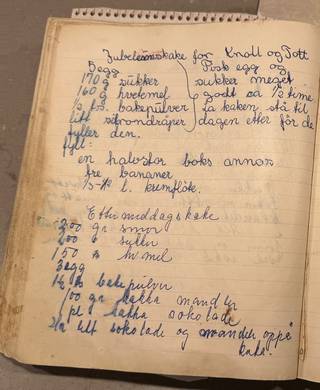 Jubeleumskake for Knoll og Tott
3 egg
Pisk egg og
170 g sukker
sukker meget
160 g hvetemel
godt ca 1/2 time
1/2 ts. bakepulver
La kaken stå til
litt sitrondråper
dagen etter før du
fyller den.
fyll:
en halvstor boks annas
tre bananer
l. kremfløte.
Ettermiddagskake
200 gr smør
200 " sukker
150 " h. mel
3 egg
1 1/2 ts bakepulver
100 gr hakka mandler
1 pl hakka sokolade
litt sokolade og mandler oppå
kaka.